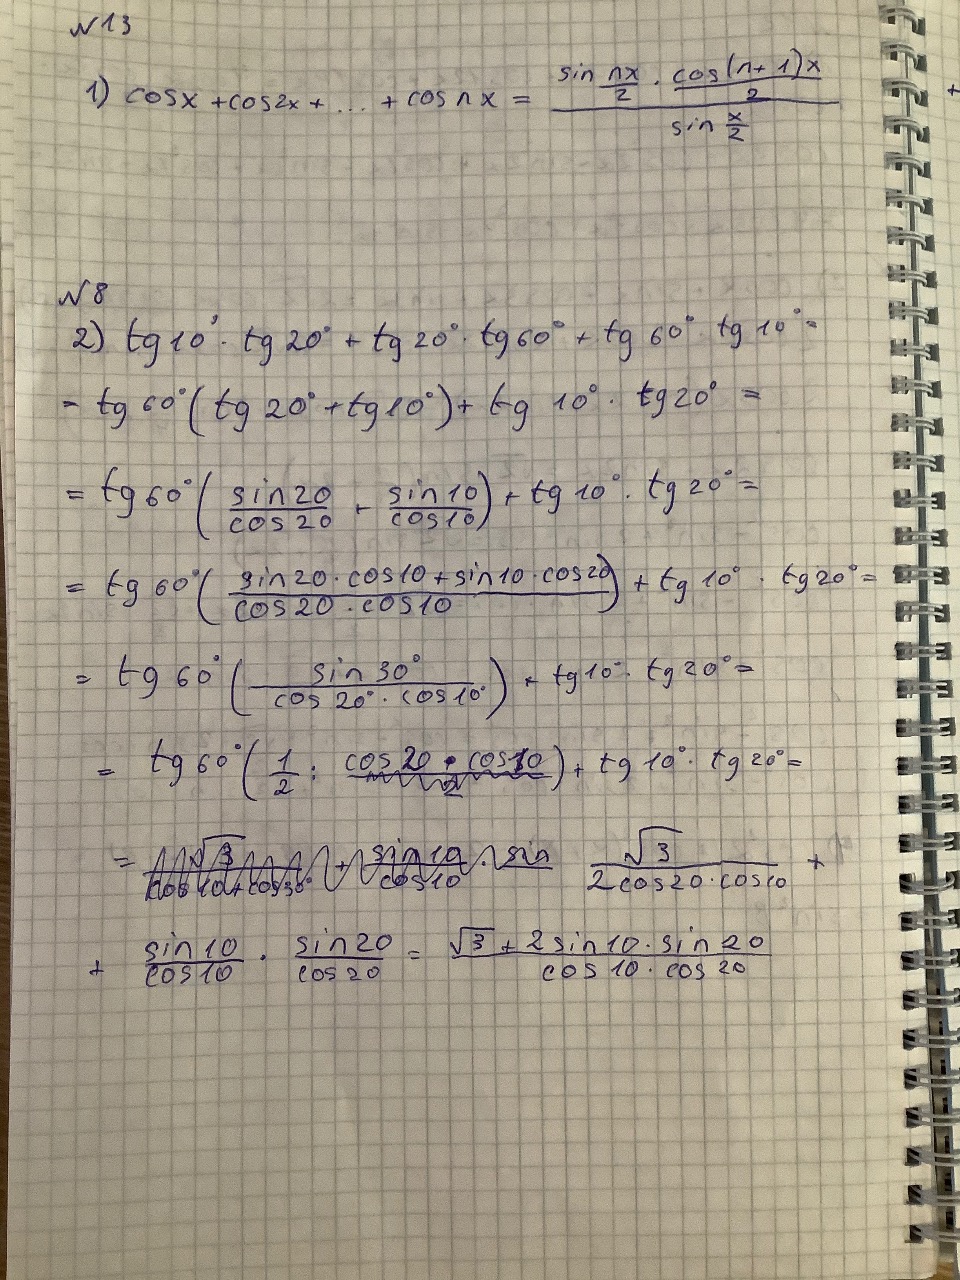 №13
1) cosx + cos2x + ... + cos nx = (sin nx/2 · cos(n+1)x/2) / (sin x/2)
№8
2) tg10° · tg20° + tg20° · tg60° + tg60° · tg10° =
= tg60° (tg20° + tg10°) + tg10° · tg20° =
= tg60° (sin20/cos20 + sin10/cos10) + tg10° · tg20° =
= tg60° ((sin20 · cos10 + sin10 · cos20)/(cos20 · cos10)) + tg10° · tg20° =
= tg60° (sin30°/(cos20° · cos10°)) + tg10° · tg20° =
= tg60° (1/2 : cos20 · cos10) + tg10° · tg20° =
= √3/(2cos20 · cos10) +
+ sin10/cos10 · sin20/cos20 = (√3 + 2sin10 · sin20)/(cos10 · cos20)